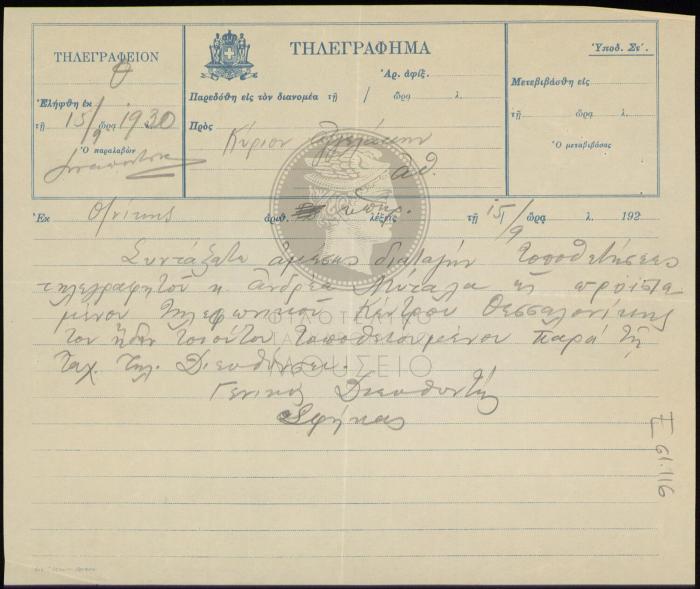 ΤΗΛΕΓΡΑΦΕΙΟΝ
Θ
Ἐλήφθη ἐκ
τῇ 15/9 ὥρα 1930
Ὁ παραλαβὼν
ΤΗΛΕΓΡΑΦΗΜΑ
Ἀρ. ἀφίξ.
Παρεδόθη εἰς τὸν διανομέα τῇ / ὥρα λ.
Πρὸς
Κύριον
Ἀθ.
Ὑποδ. Στ΄.
Μετεβιβάσθη εἰς
τῇ ὥρα λ.
Ὁ μεταβιβάσας
Ἐκ Θ/νίκης ἀριθ. λέξεις τῇ 15/9 ὥρα λ. 192
Συντάξατε ἀμέσως διαταγὴν τοποθετήσεως
τηλεγραφητοῦ κ. Ἀνδρέα ὡς προϊστα
μένου τηλεφωνικοῦ Κέντρου Θεσσαλονίκης
τὸν ἤδη τοιοῦτον τοποθετουμένου παρὰ τῇ
Ταχ. Τηλ. Διευθύνσει.
Γενικὸς Διευθυντὴς
Σφήκας
ΦΙΛΟΤΕΛΙΚΟ
ΜΟΥΣΕΙΟ
Ξ 61.116